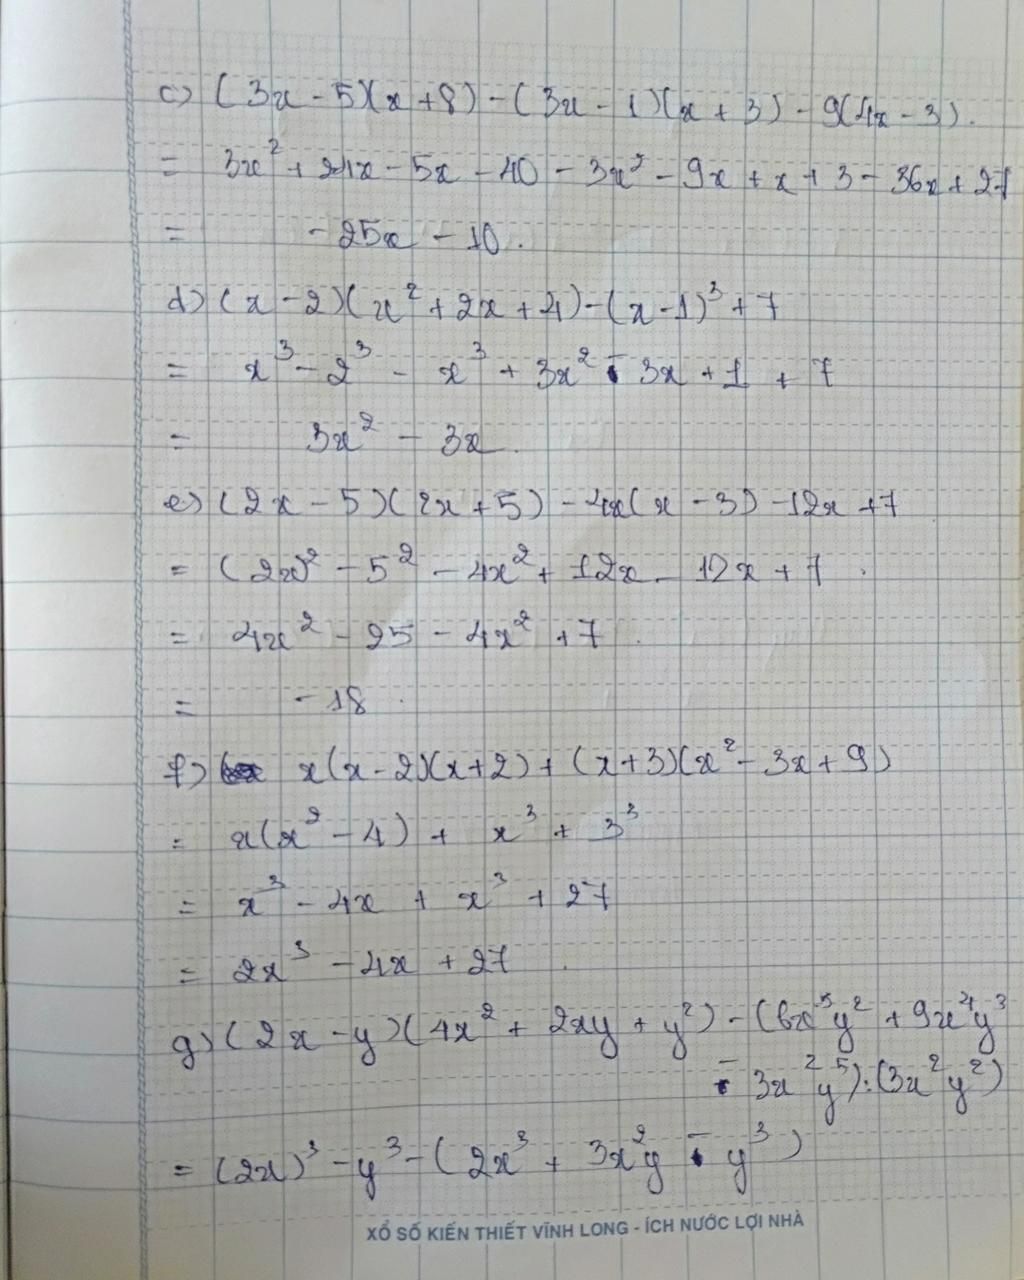 c) (3x - 5)(x + 8) - (3x - 1)(x + 3) - 9(4x - 3).
= 3x² + 24x - 5x - 40 - 3x² - 9x + x + 3 - 36x + 27
= - 25x - 10.
d) (x - 2)(x² + 2x + 4) - (x - 1)³ + 7
= x³ - 2³ - x³ + 3x² - 3x + 1 + 7
= 3x² - 3x.
e) (2x - 5)(2x + 5) - 4x(x - 3) - 12x + 7
= (2x)² - 5² - 4x² + 12x - 12x + 7.
= 4x² - 25 - 4x² + 7.
= - 18.
f) x(x - 2)(x + 2) + (x + 3)(x² - 3x + 9)
= x(x² - 4) + x³ + 3³
= x³ - 4x + x³ + 27
= 2x³ - 4x + 27.
g) (2x - y)(4x² + 2xy + y²) - (6x⁵y² + 9x⁴y³
- 3x²y⁵) : (3x²y²)
= (2x)³ - y³ - (2x³ + 3x²y - y³)
XỔ SỐ KIẾN THIẾT VĨNH LONG - ÍCH NƯỚC LỢI NHÀ